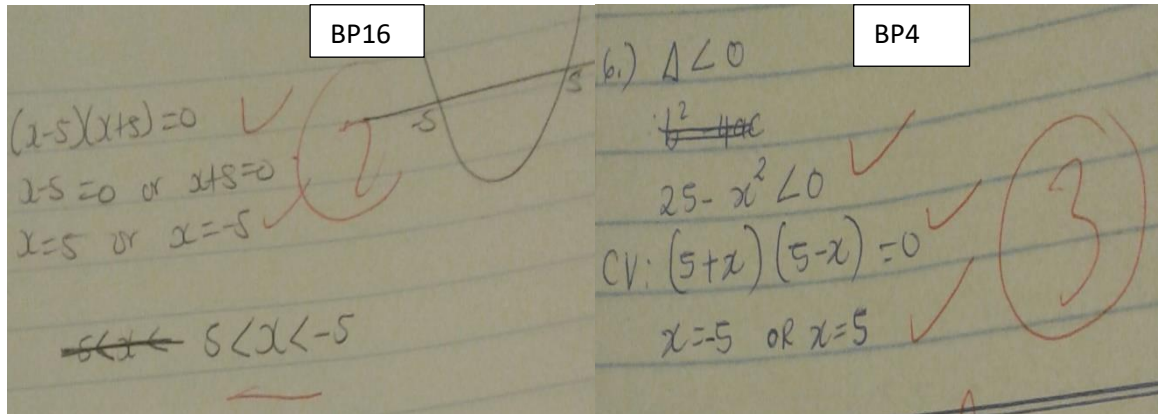 BP16
(x-5)(x+5)=0
x-5=0 or x+5=0
x=5 or x=-5
-5<x<
5<x<-5
2
-5
5
BP4
6.) Δ<0
b²-4ac
25-x²<0
CV: (5+x)(5-x)=0
x=-5 OR x=5
3